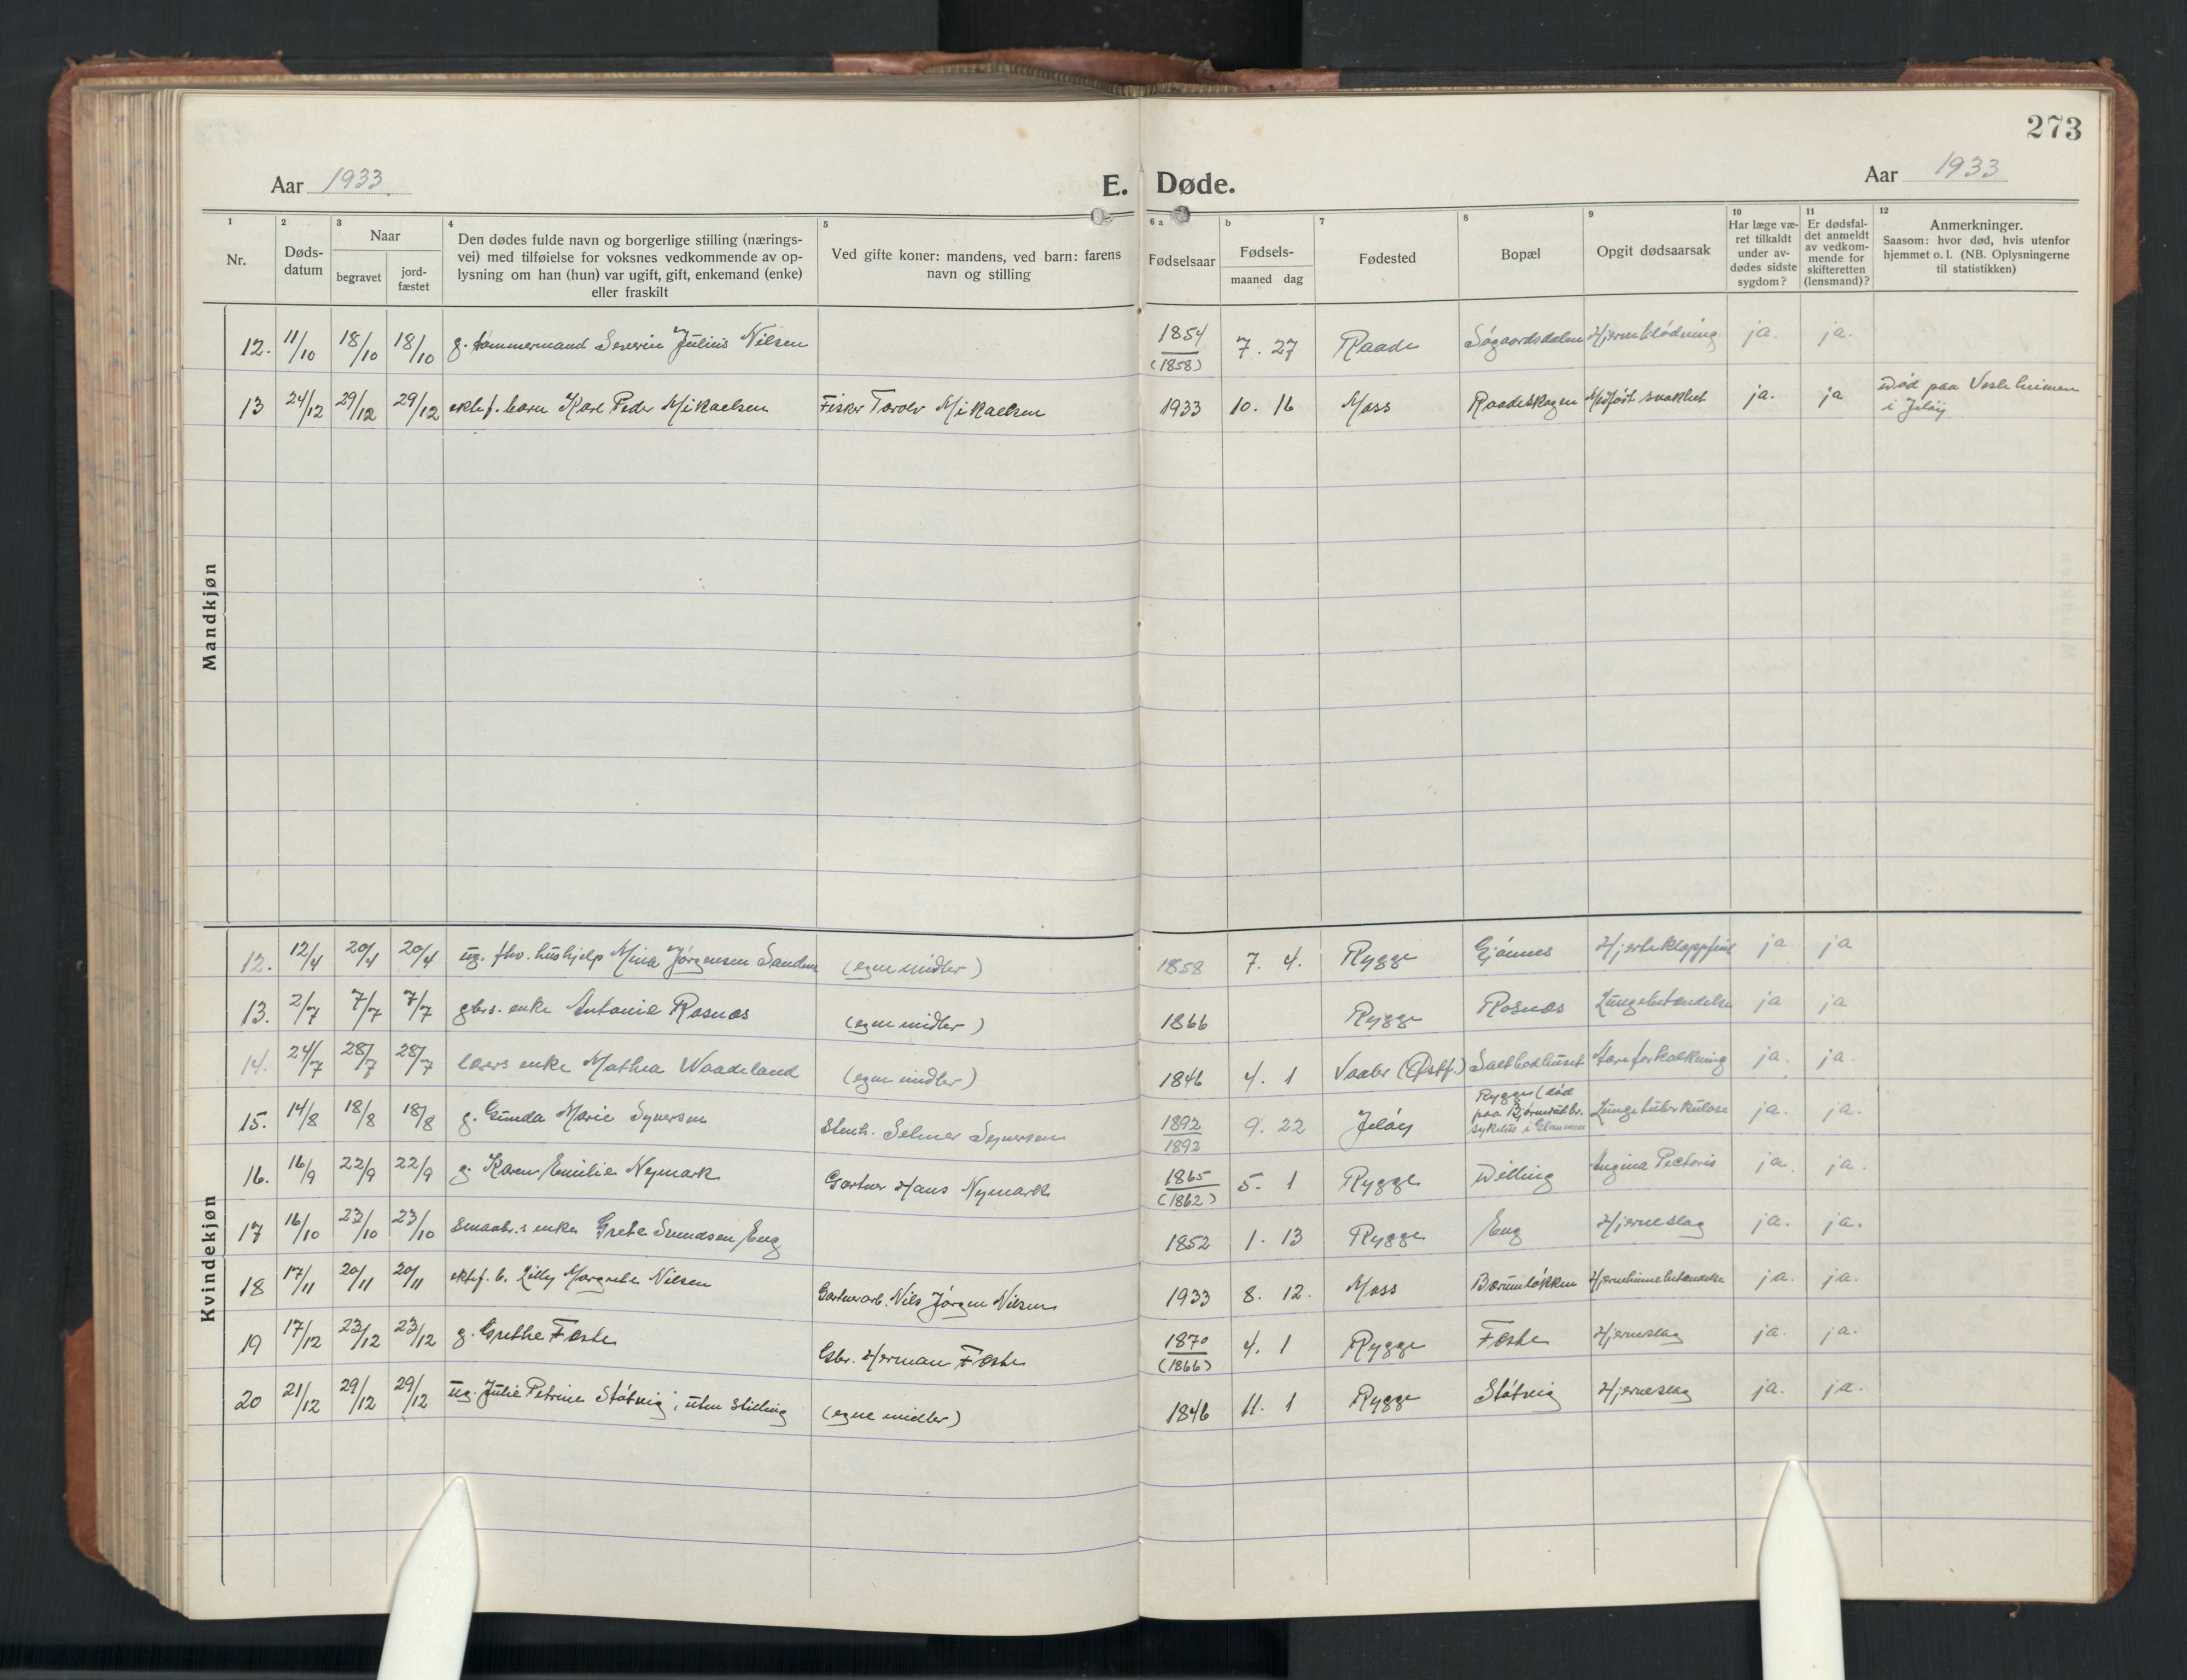 273
Aar 1933
E. Døde.
Aar 1933
1 Nr.
2 Døds-datum
3 Naar begravet jord-fæstet
4 Den dødes fulde navn og borgerlige stilling (nærings-
vei) med tilføielse for voksnes vedkommende av op-
lysning om han (hun) var ugift, gift, enkemand (enke)
eller fraskilt
5 Ved gifte koner: mandens, ved barn: farens
navn og stilling
6 a Fødselsaar
b Fødsels- maaned dag
7 Fødested
8 Bopæl
9 Opgit dødsaarsak
10 Har læge væ-
ret tilkaldt
under av-
dødes sidste
sygdom?
11 Er dødsfal-
det anmeldt
av vedkom-
mende for
skifteretten
(lensmand)?
12 Anmerkninger.
Saasom: hvor død, hvis utenfor
hjemmet o. l. (NB. Oplysningerne
til statistikken)
Mandkjøn
12. 11/10 18/10 18/10 g. tømmermand Severin Julius Nilsen 1854 (1858) 7. 27 Raade Søgaardsdalen Hjerneblødning ja. ja.
13 24/12 29/12 29/12 ektef. barn Karl Peder Mikaelsen Fisker Torolv Mikaelsen 1933 10. 16 Moss Raadeskogen Medfødt svakhet ja. ja Død paa Vesleheimen
i Jeløy
Kvindekjøn
12. 12/4 20/4 20/4 ug. fhv. hushjelp Mina Jørgensen Sanden (egne midler) 1858 7. 4. Rygge Gjønnes Hjerteklappfeil ja ja
13. 2/7 7/7 7/7 gbrs. enke Antonie Rosnæs (egne midler) 1866 Rygge Rosnæs Lungebetændelse ja ja
14. 24/7 28/7 28/7 lærers enke Mathea Vaadeland (egne midler) 1846 4. 1 Vaaler (Østf.) Saltbodhuset Aareforkalkning ja. ja
15. 14/8 18/8 18/8 g. Gunda Marie Syversen Stenh. Selmer Syversen 1892 1892 9. 22 Jeløy Rygge (død
paa Bjørnerud tbr.
sykehus i Glemmen Lungetuberkulose ja. ja.
16. 16/9 22/9 22/9 g. Karen Emilie Nymark Gartner Hans Nymark 1865 (1862) 5. 1 Rygge Dilling Angina Pectoris ja. ja.
17 16/10 23/10 23/10 Smaabr.s enke Grete Svendsen Eng 1852 1. 13 Rygge Eng Hjerneslag ja. ja.
18 17/11 20/11 20/11 ektef. b. Lilly Margrethe Nilsen Gartnerarb. Nils Jørgen Nilsen 1933 8. 12. Moss Bærumløkken Hjernehinnebetændelse ja. ja.
19 17/12 23/12 23/12 g. Grethe Feste Gbr. Herman Feste 1870 (1866) 4. 1 Rygge Feste Hjerneslag ja. ja.
20 21/12 29/12 29/12 ug. Julie Petrine Støtvig, uten stilling (egne midler) 1846 11. 1 Rygge Støtvig Hjerneslag ja. ja.